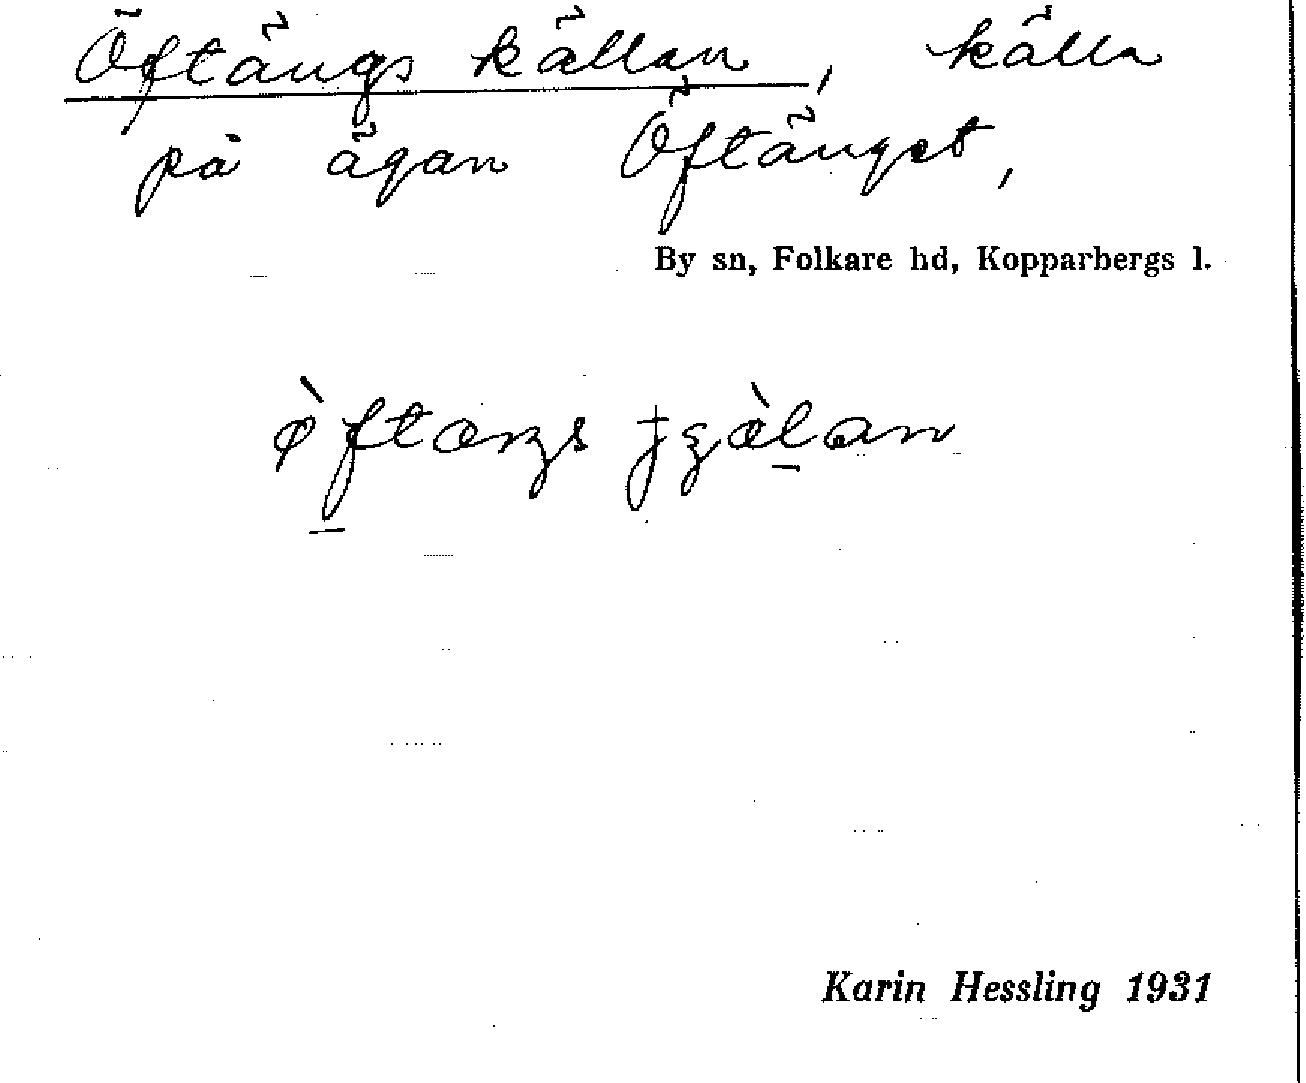 Öftängs källan, källa
på ägan Öftänget,
By sn, Folkare hd, Kopparbergs l.
Karin Hessling 1931